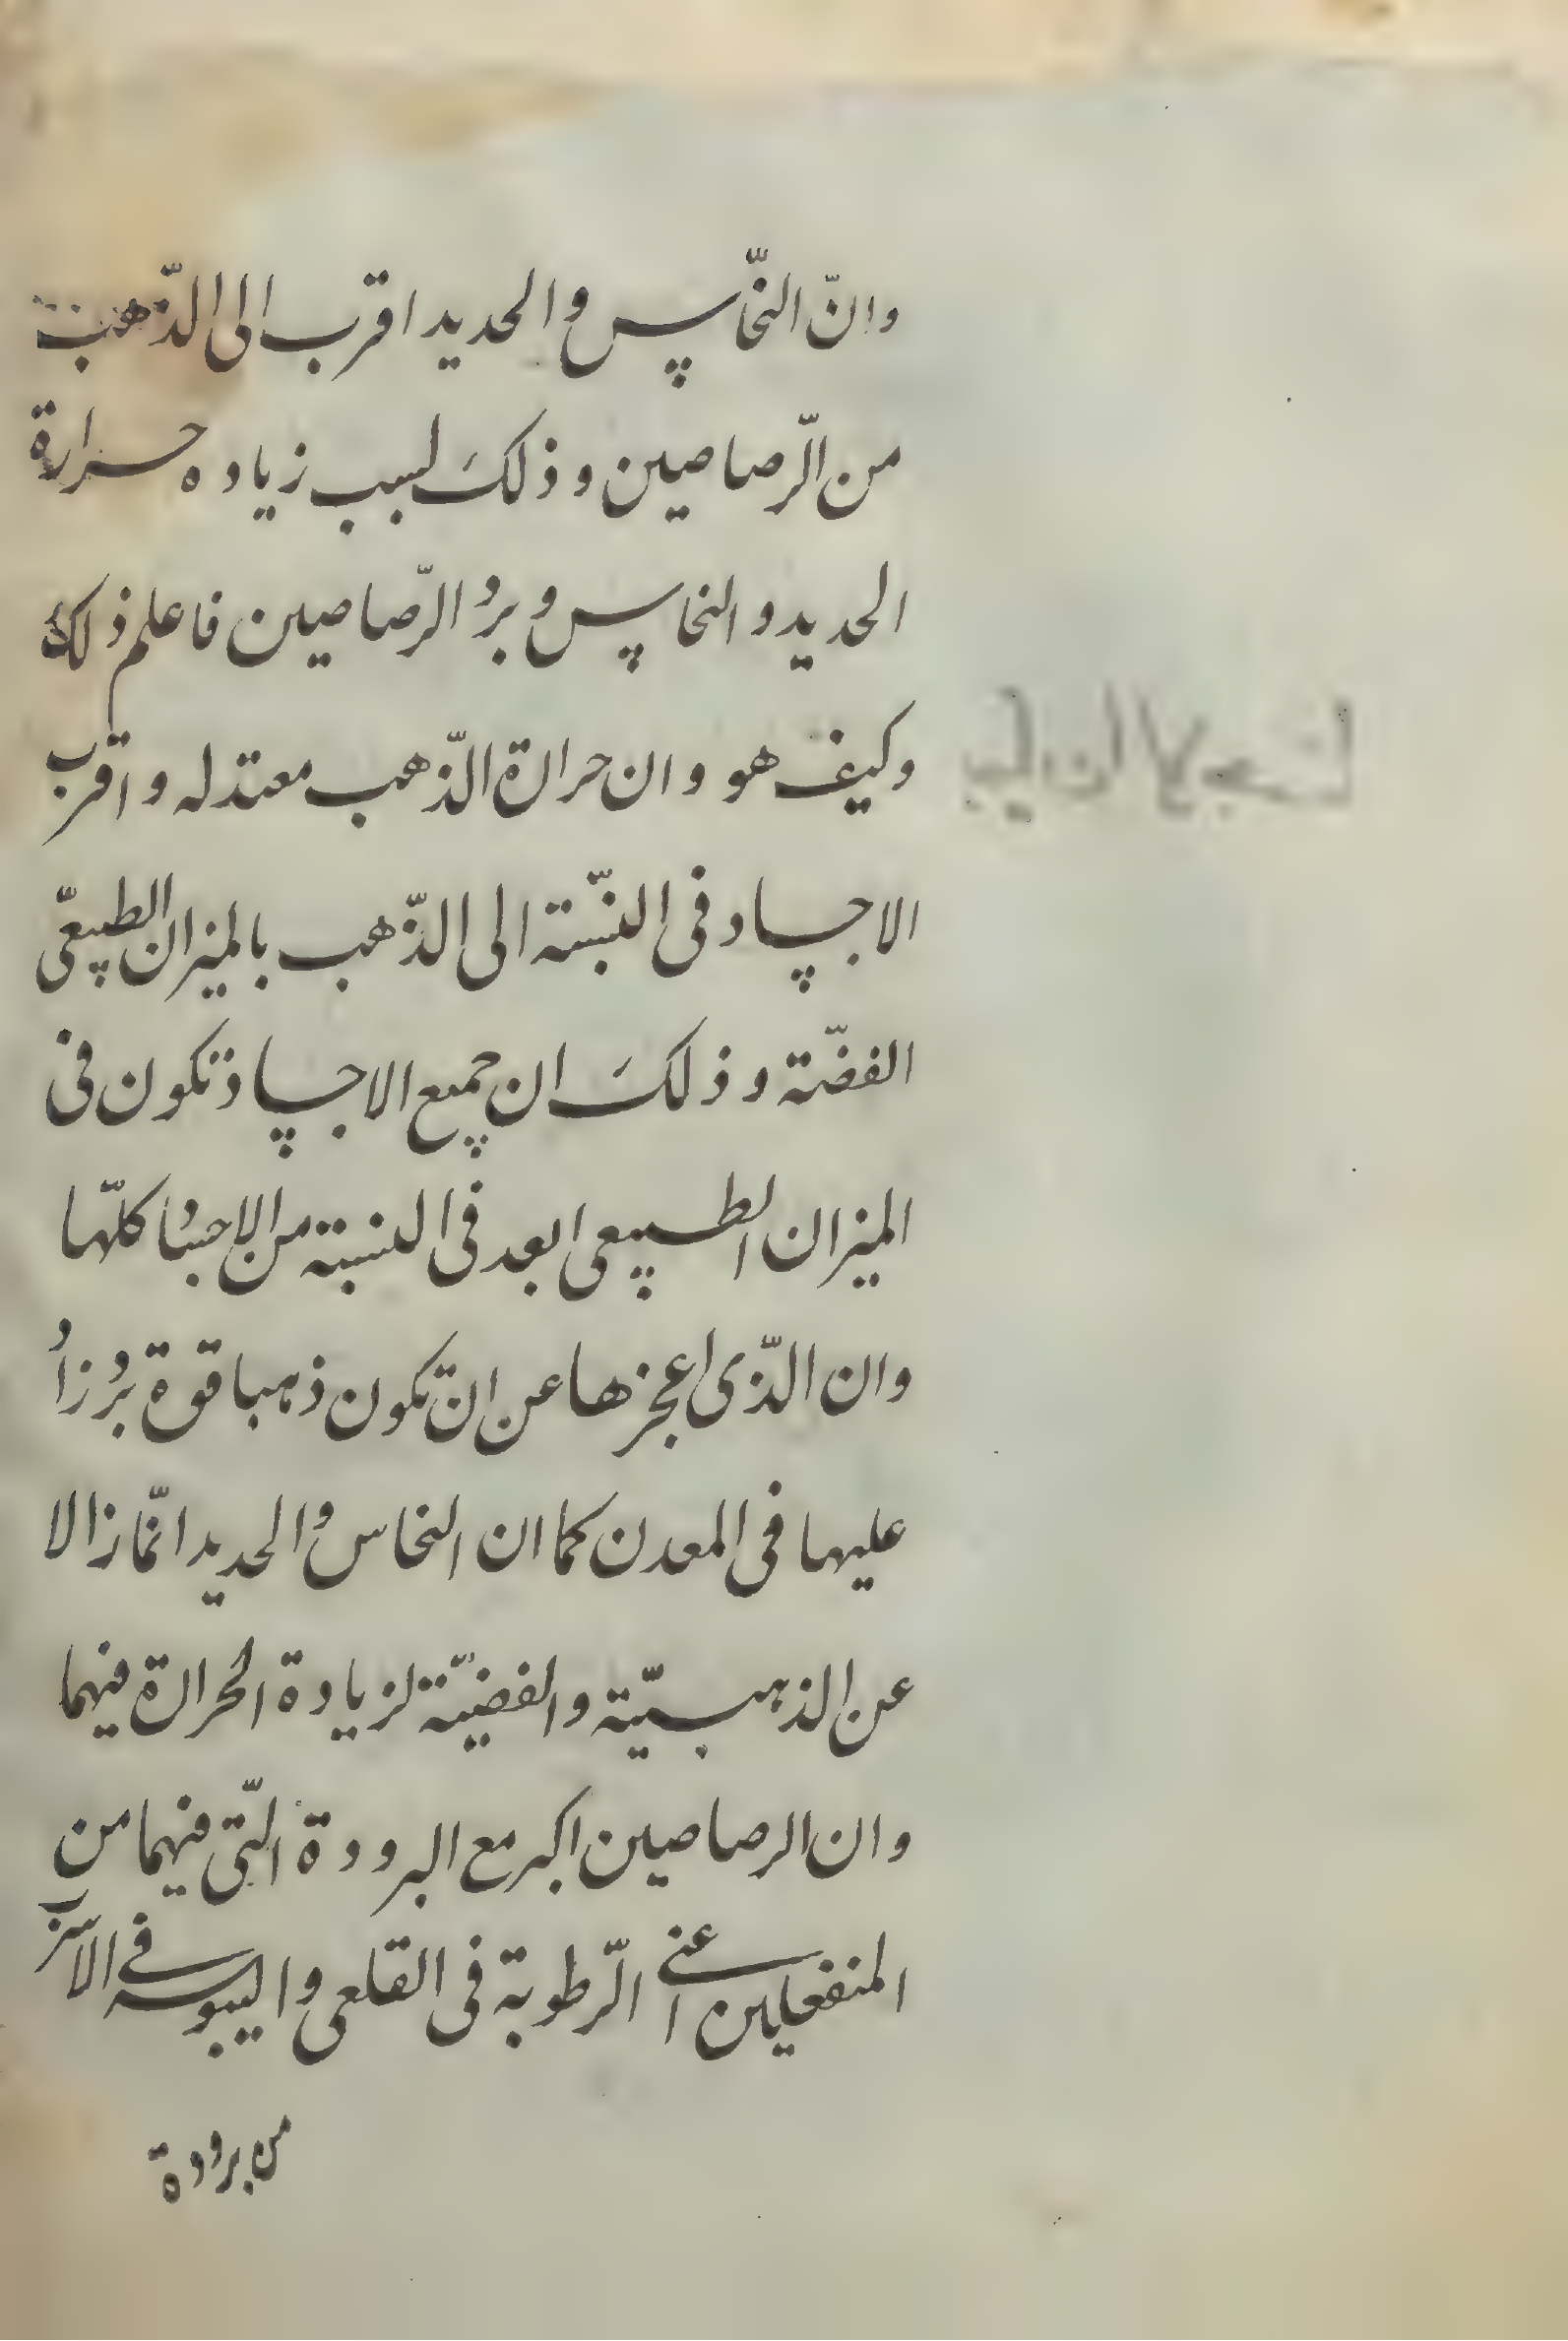 وانّ النّحاس والحديد اقرب الى الذّهب
من الّرصاصين وذلكَ لسبب زياده حرارة
الحديد والنحاس وبردُ الرّصاصين فاعلم ذلك
وكيف هو وان حرارة الذّهب معتدله واقرب
الاجساد فى النّسبة الى الذّهب بالميزان الطبيعّى
الفضّة وذلكَ ان جميع الاجساد تكون فى
الميزان الطبيعى ابعد فى النسبة من الاجساد كلّها
وان الذّى اعجزها عن ان تكون ذهبا قوة بُرد زاد
عليها فى المعدن كما ان النحاس والحديد انّما زالا
عن الذهبيّة والفضيّة لزيادة الحرارة فيهما
وان الرصاصين اكبر مع البرودة الّتى فيهما من
المنفعلين اعنى الّرطوبة فى القلعى واليبوسه فى الاسرب
من برودة